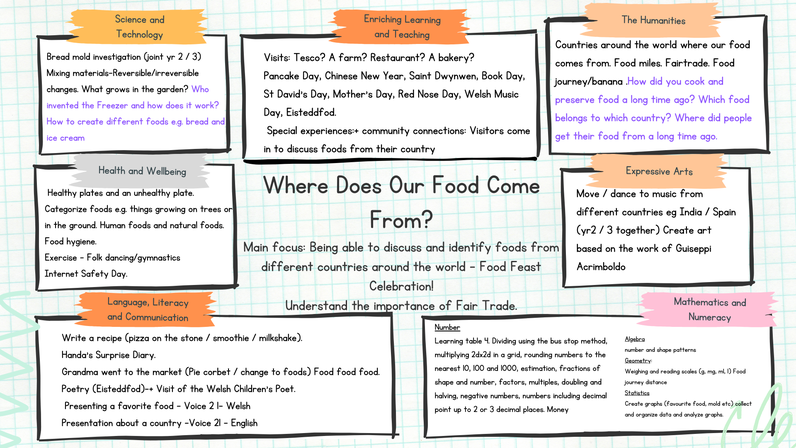 Science and
Technology
Bread mold investigation (joint yr 2 / 3)
Mixing materials-Reversible/irreversible
changes. What grows in the garden? Who
invented the Freezer and how does it work?
How to create different foods e.g. bread and
ice cream
Enriching Learning
and Teaching
Visits: Tesco? A farm? Restaurant? A bakery?
Pancake Day, Chinese New Year, Saint Dwynwen, Book Day,
St David's Day, Mother's Day, Red Nose Day, Welsh Music
Day, Eisteddfod.
Special experiences:+ community connections: Visitors come
in to discuss foods from their country
The Humanities
Countries around the world where our food
comes from. Food miles. Fairtrade. Food
journey/banana .How did you cook and
preserve food a long time ago? Which food
belongs to which country? Where did people
get their food from a long time ago.
Health and Wellbeing
Healthy plates and an unhealthy plate.
Categorize foods e.g. things growing on trees or
in the ground. Human foods and natural foods.
Food hygiene.
Exercise - Folk dancing/gymnastics
Internet Safety Day.
Where Does Our Food Come
From?
Main focus: Being able to discuss and identify foods from
different countries around the world - Food Feast
Celebration!
Understand the importance of Fair Trade.
Expressive Arts
Move / dance to music from
different countries eg India / Spain
(yr2 / 3 together) Create art
based on the work of Guiseppi
Acrimboldo
Language, Literacy
and Communication
Write a recipe (pizza on the stone / smoothie / milkshake).
Handa's Surprise Diary.
Grandma went to the market (Pie corbet / change to foods) Food food food.
Poetry (Eisteddfod)-+ Visit of the Welsh Children's Poet.
Presenting a favorite food - Voice 2 l- Welsh
Presentation about a country -Voice 2l - English
Mathematics and
Numeracy
Number
Learning table 4. Dividing using the bus stop method,
multiplying 2dx2d in a grid, rounding numbers to the
nearest 10, 100 and 1000, estimation, fractions of
shape and number, factors, multiples, doubling and
halving, negative numbers, numbers including decimal
point up to 2 or 3 decimal places. Money
Algebra
number and shape patterns
Geometry:
Weighing and reading scales (g, mg, ml, l) Food
journey distance
Statistics
Create graphs (favourite food, mold etc) collect
and organize data and analyze graphs.